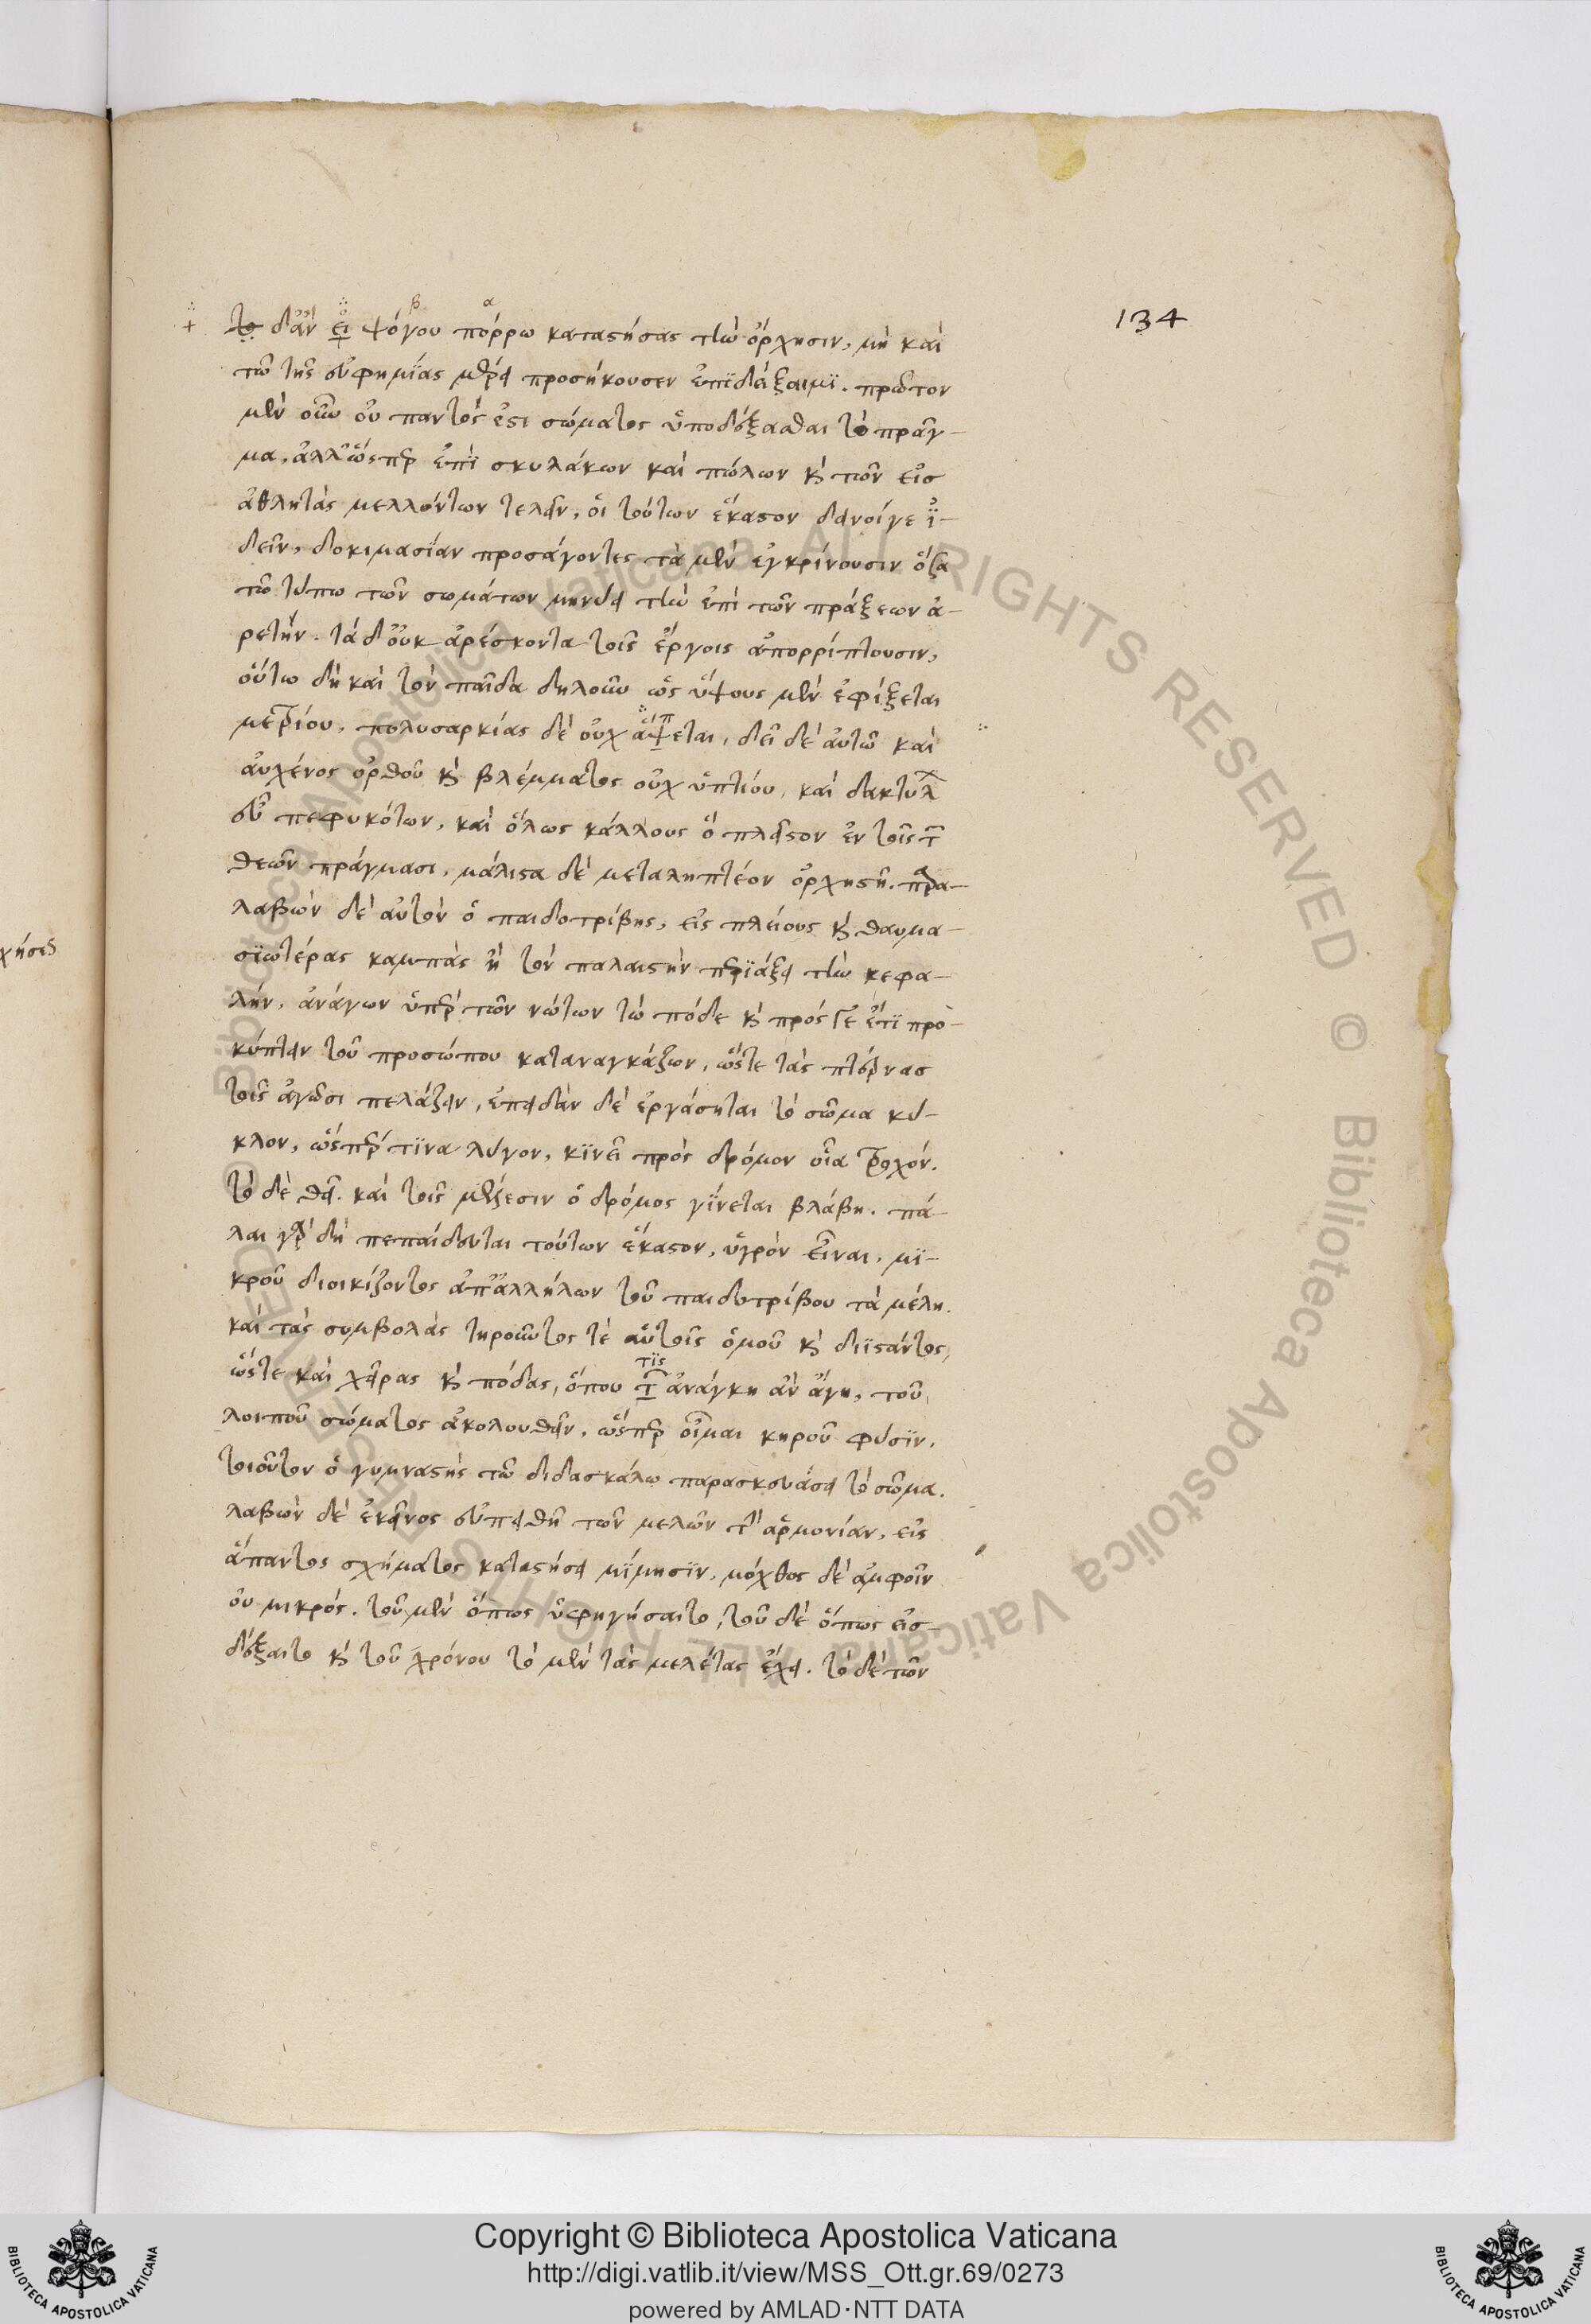 134
τὸ δ' ἂν εἴ ψόγου πόρρω καταστήσας τὴν ὄρχησιν, μὴ καὶ
τῷ τῆς εὐφημίας μέρει προσήκουσεν ἐπϊδείξαιμϊ. πρῶτον
μὲν οὖν οὐ παντός ἐστι σώματος ὑποδέξασθαι τὸ πρᾶγ-
μα. ἀλλ' ὥσπερ ἐπῒ σκυλάκων καὶ πώλων καὶ τῶν εἰσ
ἀθλητὰς μελλόντων τελεῖν, οἱ τούτων ἕκαστον δεινοί γε ἰ-
δεῖν, δοκιμασίαν προσάγοντες τὰ μὲν ἐγκρίνουσιν ὅσα
τῷ τύπω τῶν σωμάτων μηνύει τὴν ἐπὶ τῶν πράξεων ἀ-
ρετήν. τὰ δ' οὐκ ἀρέσκοντα τοῖς ἔργοις ἀπορρίπτουσιν,
οὕτω δὴ καὶ τὸν παῖδα δηλοῦν ὡς ὕψους μὲν ἐφίξεται
μετρίου, πολυσαρκίας δὲ οὐχ ἅψεται, δεῖ δὲ αὐτῷ καὶ
αὐχένος ὀρθοῦ καὶ βλέμματος οὐχ ὑπτίου, καὶ δακτύλ
εὖ πεφυκότων, καὶ ὅλως κάλλους ὃ πλεῖστον ἐν τοῖς τ
θεῶν πράγμασι, μάλιστα δὲ μεταληπτέον ὀρχηστῇ. παρα-
λαβὼν δὲ αὐτὸν ὁ παιδοτρίβης, εἰς πλείους καὶ θαυμα-
σϊωτέρας καμπὰς ἢ τὸν παλαιστὴν περϊάξει τὴν κεφα-
λήν, ἀνάγων ὑπὲρ τῶν νώτων τὼ πόδε καὶ πρός γε ἔτϊ προ-
κύπτειν τοῦ προσώπου καταναγκάζων, ὥστε τὰς πτέρνασ
τοῖς ἀγῶσι πελάζειν, ἐπειδὰν δὲ ἐργάσηται τὸ σῶμα κύ-
κλον, ὥσπερ τϊνα λύγον, κϊνεῖ πρὸς δρόμον οἷα τροχόν.
τὸ δὲ θεῖ. καὶ τοῖς μέλεσιν ὁ δρόμος γίνεται βλάβη. πά-
λαι γὰρ δὴ πεπαίδευται τούτων ἕκαστον, ὑγρὸν εἶναι, μϊ-
κροῦ διοικίζοντος ἀπ' ἀλλήλων τοῦ παιδοτρίβου τὰ μέλη.
καὶ τὰς συμβολὰς τηροῦντος τὲ αὐτοῖς ὁμοῦ καὶ διϊστάντος,
ὥστε καὶ χεῖρας καὶ πόδας, ὅπου τϊς ἀνάγκη ἂν ἄγη, τοῦ
λοιποῦ σώματος ἀκολουθεῖν, ὥσπερ οἶμαι κηροῦ φύσϊν.
τοιοῦτον ὁ γυμναστὴς τῷ διδασκάλω παρασκευάσει τὸ σῶμα.
λαβὼν δὲ ἐκεῖνος εὐπειθῆ τῶν μελῶν τὴν ἁρμονίαν, εἰς
ἅπαντος σχήματος καταστήσει μίμησϊν, μόχθος δὲ ἀμφοῖν
οὐ μικρός. τοῦ μὲν ὅπως ὑφηγήσαιτο, τοῦ δὲ ὅπως εἰσ-
δέξαιτο καὶ τοῦ χρόνου τὸ μὲν τὰς μελέτας ἔχει. τὸ δὲ τῶν
Copyright © Biblioteca Apostolica Vaticana
http://digi.vatlib.it/view/MSS_Ott.gr.69/0273
powered by AMLAD·NTT DATA